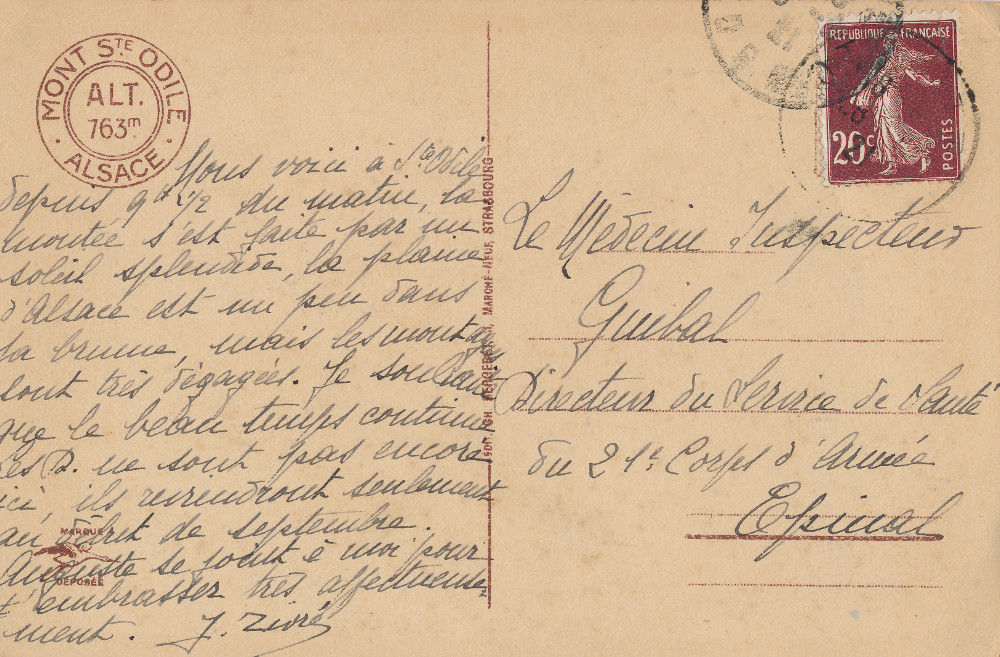 MONT STE ODILE
ALT.
763m
ALSACE
Nous voici à Ste Odile
depuis 9h 1/2 du matin, la
montée s'est faite par un
soleil splendide, la plaine
d'Alsace est un peu dans
la brume, mais les montag
sont très dégagées. Je souhaite
que le beau temps continue
les B. ne sont pas encore
ici, ils reviendront seulement
au début de septembre.
Auguste se joint à moi pour
t'embrasser très affectueuse
ment. J.
MARQUE
DÉPOSÉE
MARCHÉ-NEUF, STRASBOURG
REPUBLIQUE FRANÇAISE
20c
POSTES
Le Médecin Inspecteur
Guibal
Directeur du Service de Santé
du 21e Corps d'Armée
Epinal